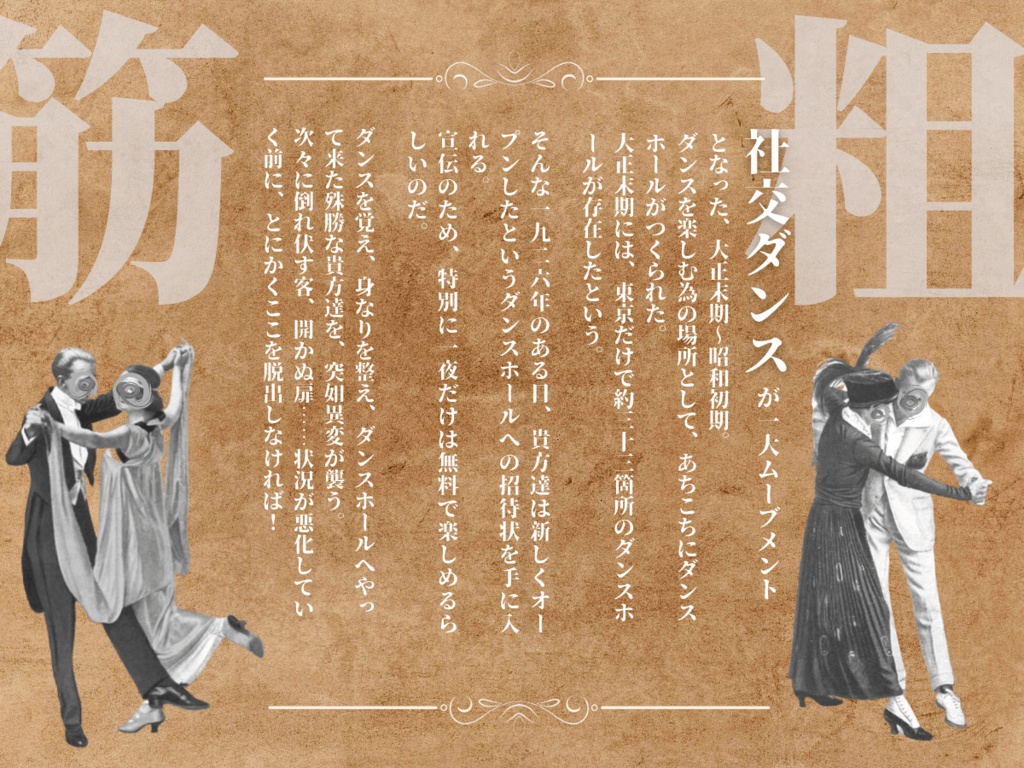 粗筋
社交ダンスが一大ムーブメント
となった、大正末期〜昭和初期。
ダンスを楽しむ為の場所として、あちこちにダンス
ホールがつくられた。
大正末期には、東京だけで約三十三箇所のダンスホ
ールが存在したという。
そんな一九二六年のある日、貴方達は新しくオー
プンしたというダンスホールへの招待状を手に入
れる。
宣伝のため、特別に一夜だけは無料で楽しめるら
しいのだ。
ダンスを覚え、身なりを整え、ダンスホールへやっ
て来た殊勝な貴方達を、突如異変が襲う。
次々に倒れ伏す客、開かぬ扉……状況が悪化してい
く前に、とにかくここを脱出しなければ！